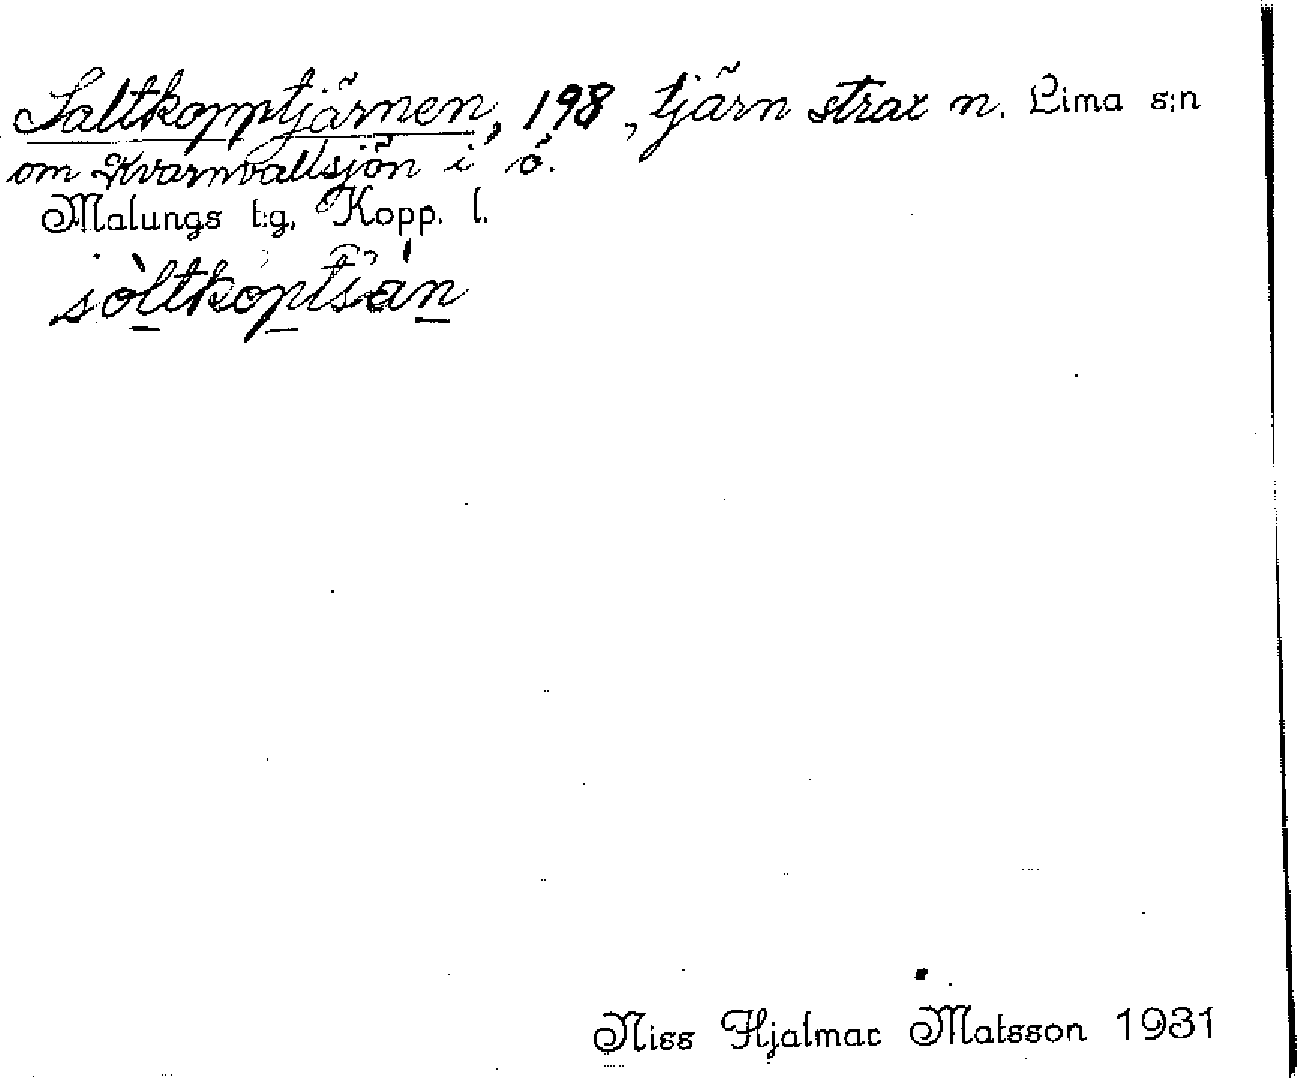 Saltkopptjärnen, 198, tjärn strax n. Lima s:n
om Kvarnvallsjön i ö.
Malungs t:g. Kopp. l.
Niss Hjalmar Matsson 1931